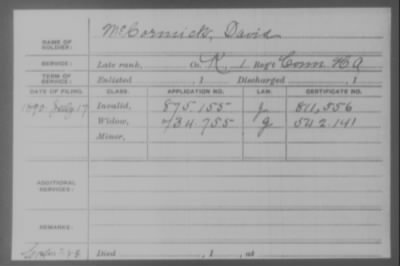 NAME OF SOLDIER: McCormick, David
SERVICE: Late rank, Co. K, 1 Reg't Conn H A
TERM OF SERVICE: Enlisted , 1 Discharged , 1
DATE OF FILING. CLASS. APPLICATION NO. LAW. CERTIFICATE NO.
1890 July 17 Invalid, 875.155 J 811,556
Widow, 734.755 G 542.141
Minor,
ADDITIONAL SERVICES:
REMARKS:
Died , 1 , at